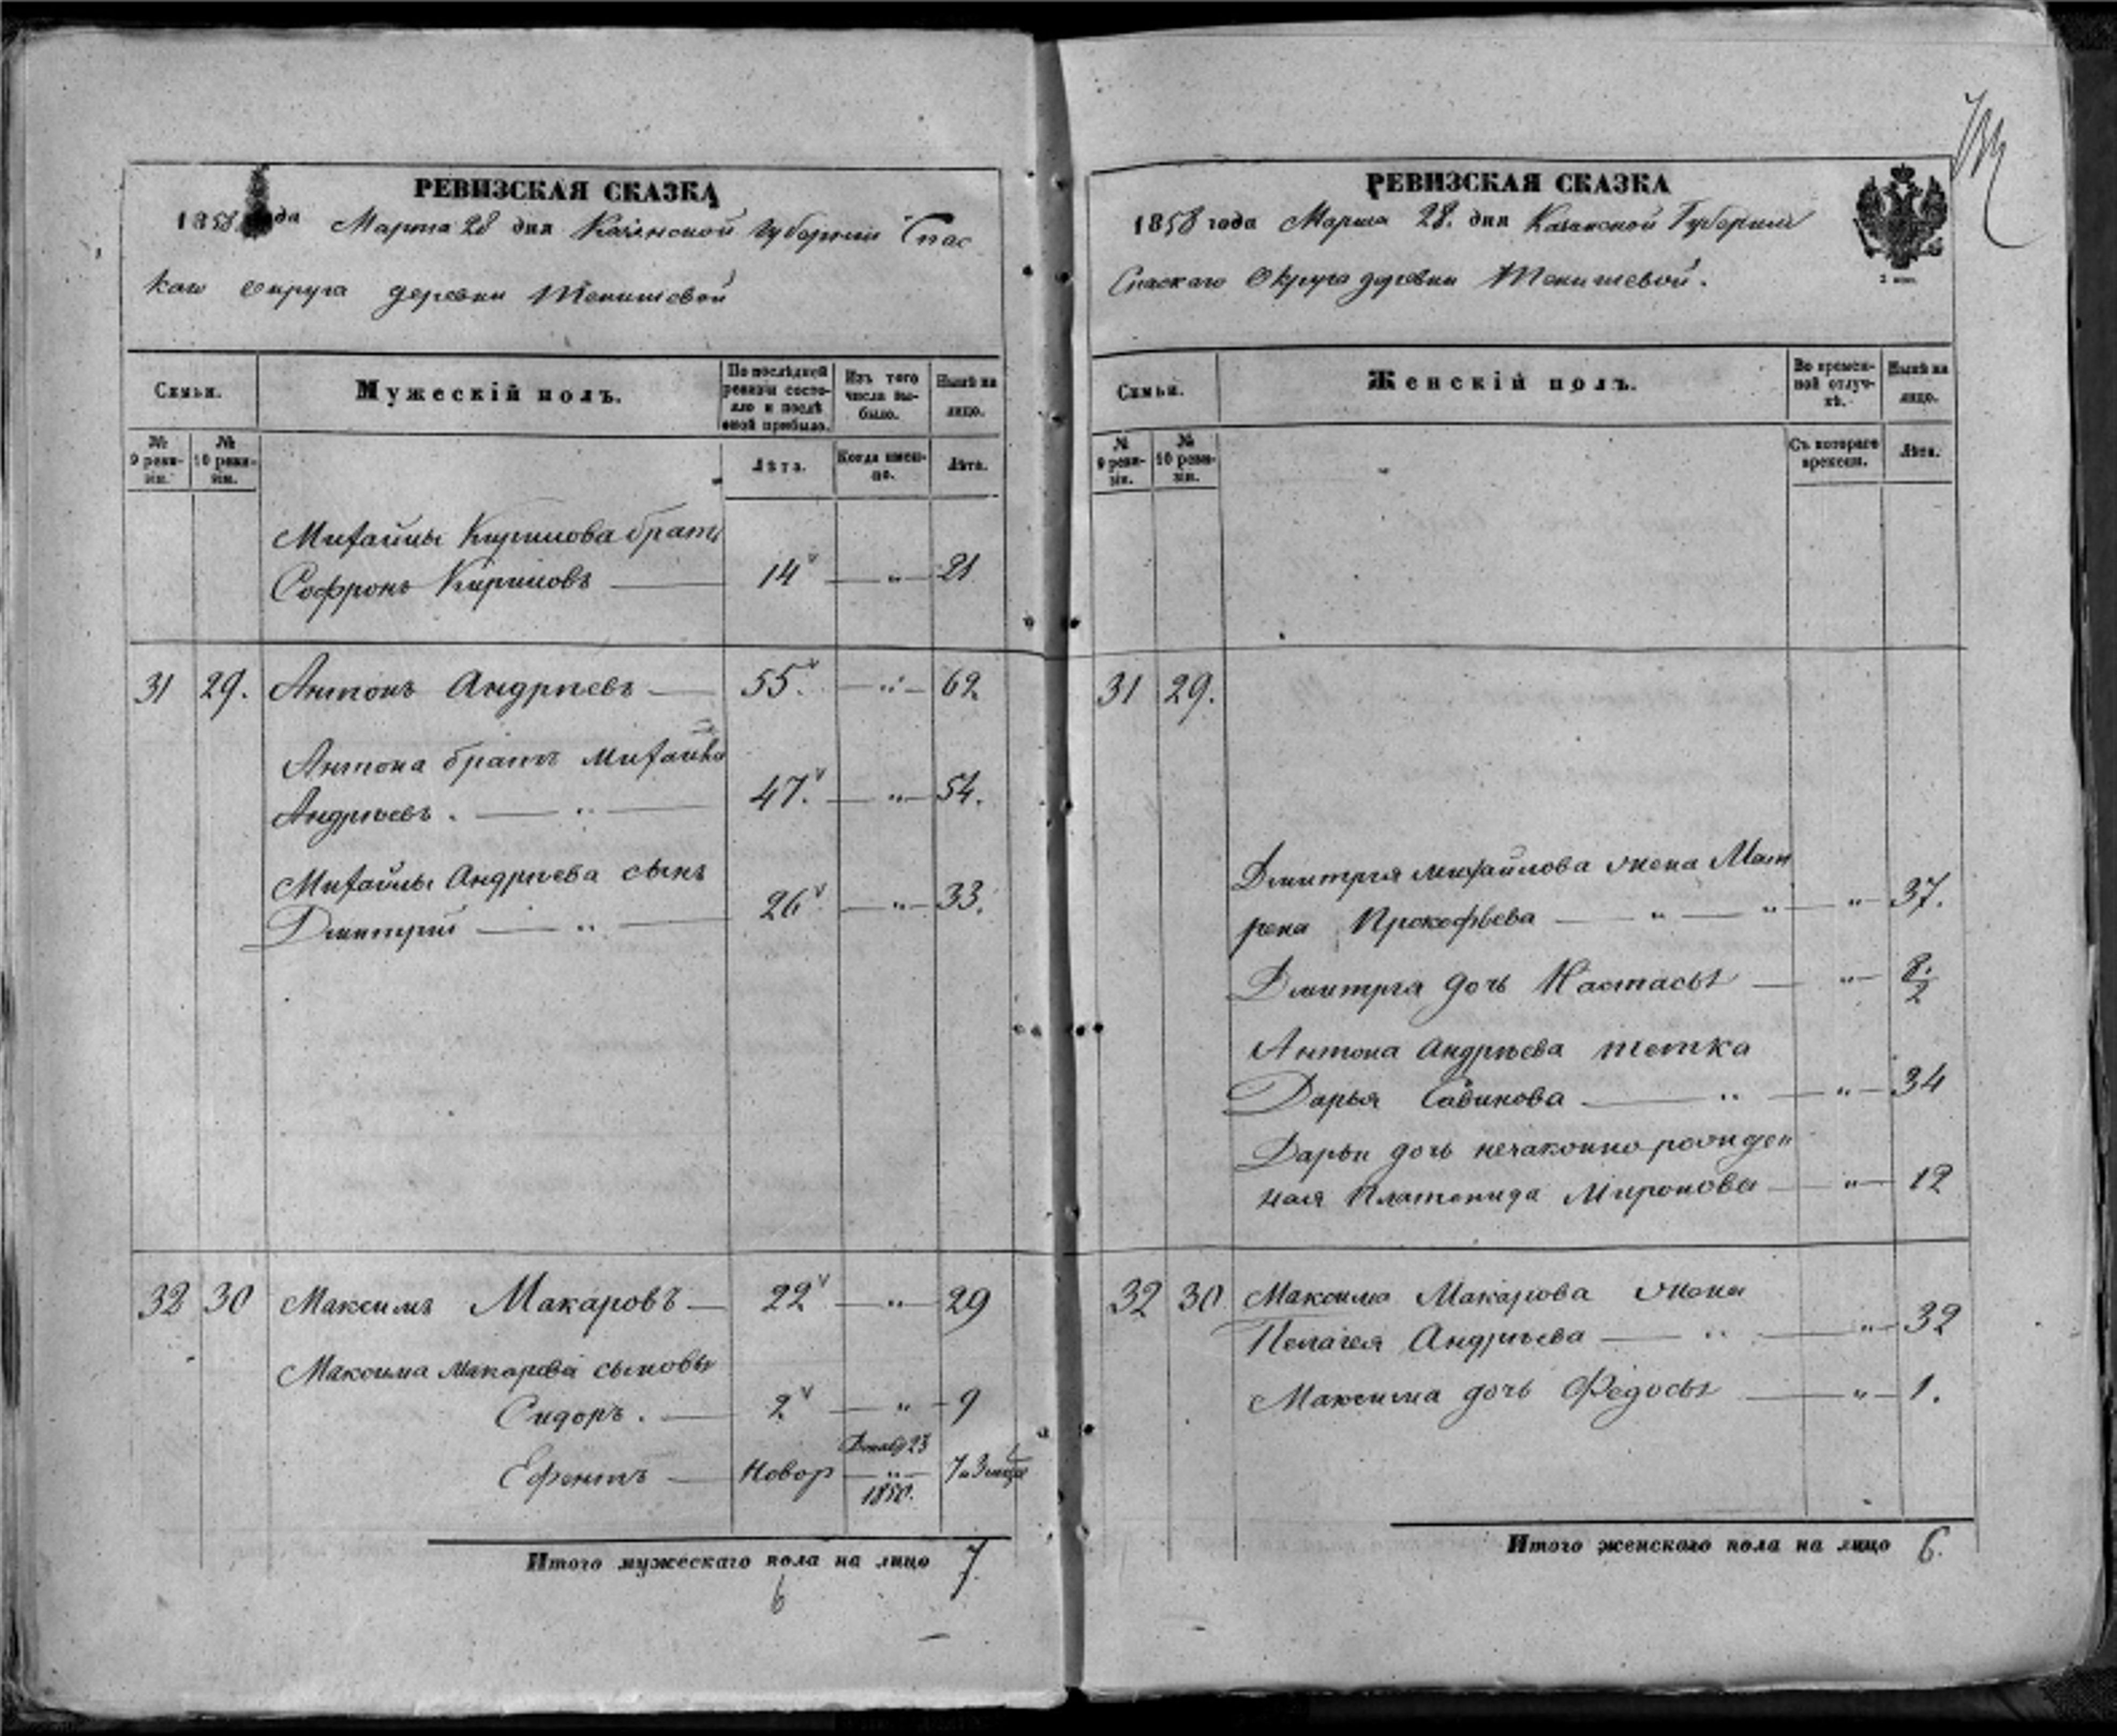 РЕВИЗСКАЯ СКАЗКА
1858 года Марта 28 дня Казанской Губернии Спас
каго округа деревни Тенишевой
Семьи.
Мужескій полъ.
По послѣдней ревизіи состояло и послѣ оной прибыло.
Изъ того числа выбыло.
Нынѣ на лицо.
№ 9 ревизіи.
№ 10 ревизіи.
Лѣта.
Когда именно.
Лѣта.
Михайлы Кирилова братъ
Софронъ Кириловъ — 14 — „ — 21
31 29. Антонъ Андрѣевъ — 55. — „ — 62
Антона братъ Михайла
Андрѣевъ. — „ — 47. — „ — 54.
Михайлы Андрѣева сынъ
Дмитрій — „ — 26 — „ — 33.
32 30 Максимъ Макаровъ — 22 — „ — 29
Максима Макарова сыновья
Сидоръ. — 2 — „ — 9
Декаб 23
Ефентъ — Новор — „ — 7 и 3 мѣся
1850.
Итого мужескаго пола на лицо 7.
6
РЕВИЗСКАЯ СКАЗКА
1858 года Марта 28. дня Казанской Губерніи
Спаскаго Округа деревни Тенишевой.
2 коп.
Семьи.
Женскій полъ.
Во временной отлучкѣ.
Нынѣ на лицо.
№ 9 ревизіи.
№ 10 ревизіи.
Съ котораго времени.
Лѣта.
31 29.
Дмитрія Михайлова жена Мат
рена Прокофьева — „ — „ — „ — 37.
Дмитрія дочь Настасья — „ — 8. 2
Антона Андрѣева тетка
Дарья Савинова — „ — „ — 34
Дарьи дочь незаконно рожден
ная Платонида Миронова — „ — 12
32 30 Максима Макарова жена
Пелагея Андрѣева — „ — „ — 32
Максима дочь Федосья — „ — 1.
Итого женскаго пола на лицо 6.